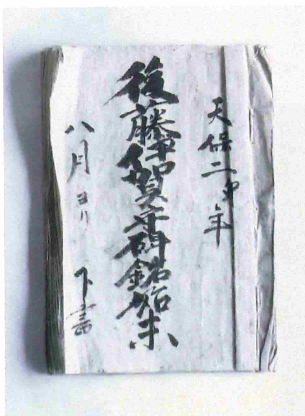 天保二卯年
後藤伊賀守碑銘始末
八月ヨリ 下書